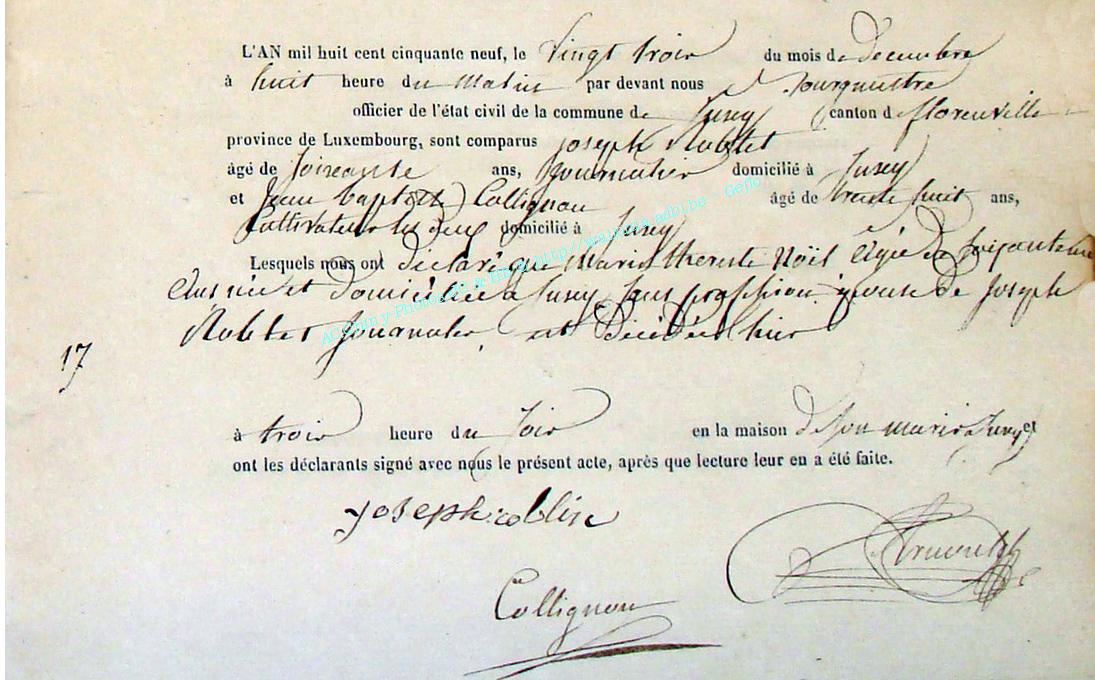 L'AN mil huit cent cinquante neuf, le vingt trois du mois de decembre
à huit heure du matin par devant nous Bourgmestre
officier de l'état civil de la commune de Suxy canton de florenville
province de Luxembourg, sont comparus joseph Roblet
âgé de soixante ans, journalier domicilié à Suxy
et Jean baptiste Collignon âgé de trente huit ans,
Cultivateur les deux domicilié à Suxy
Lesquels nous ont déclaré que Marie therese Noël agée de soixante
ans née et domiciliée a Suxy sans profession épouse de Joseph
Roblet journalier, est décédée hier
17
à trois heure du soir en la maison de son mari a Suxy et
ont les déclarants signé avec nous le présent acte, après que lecture leur en a été faite.
joseph
Collignon